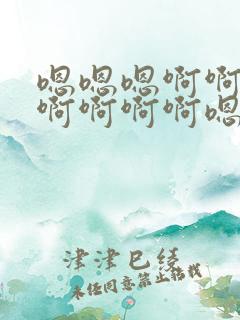 嗯嗯嗯啊啊
啊啊啊啊嗯
津津巳绫
未经同意禁止转载